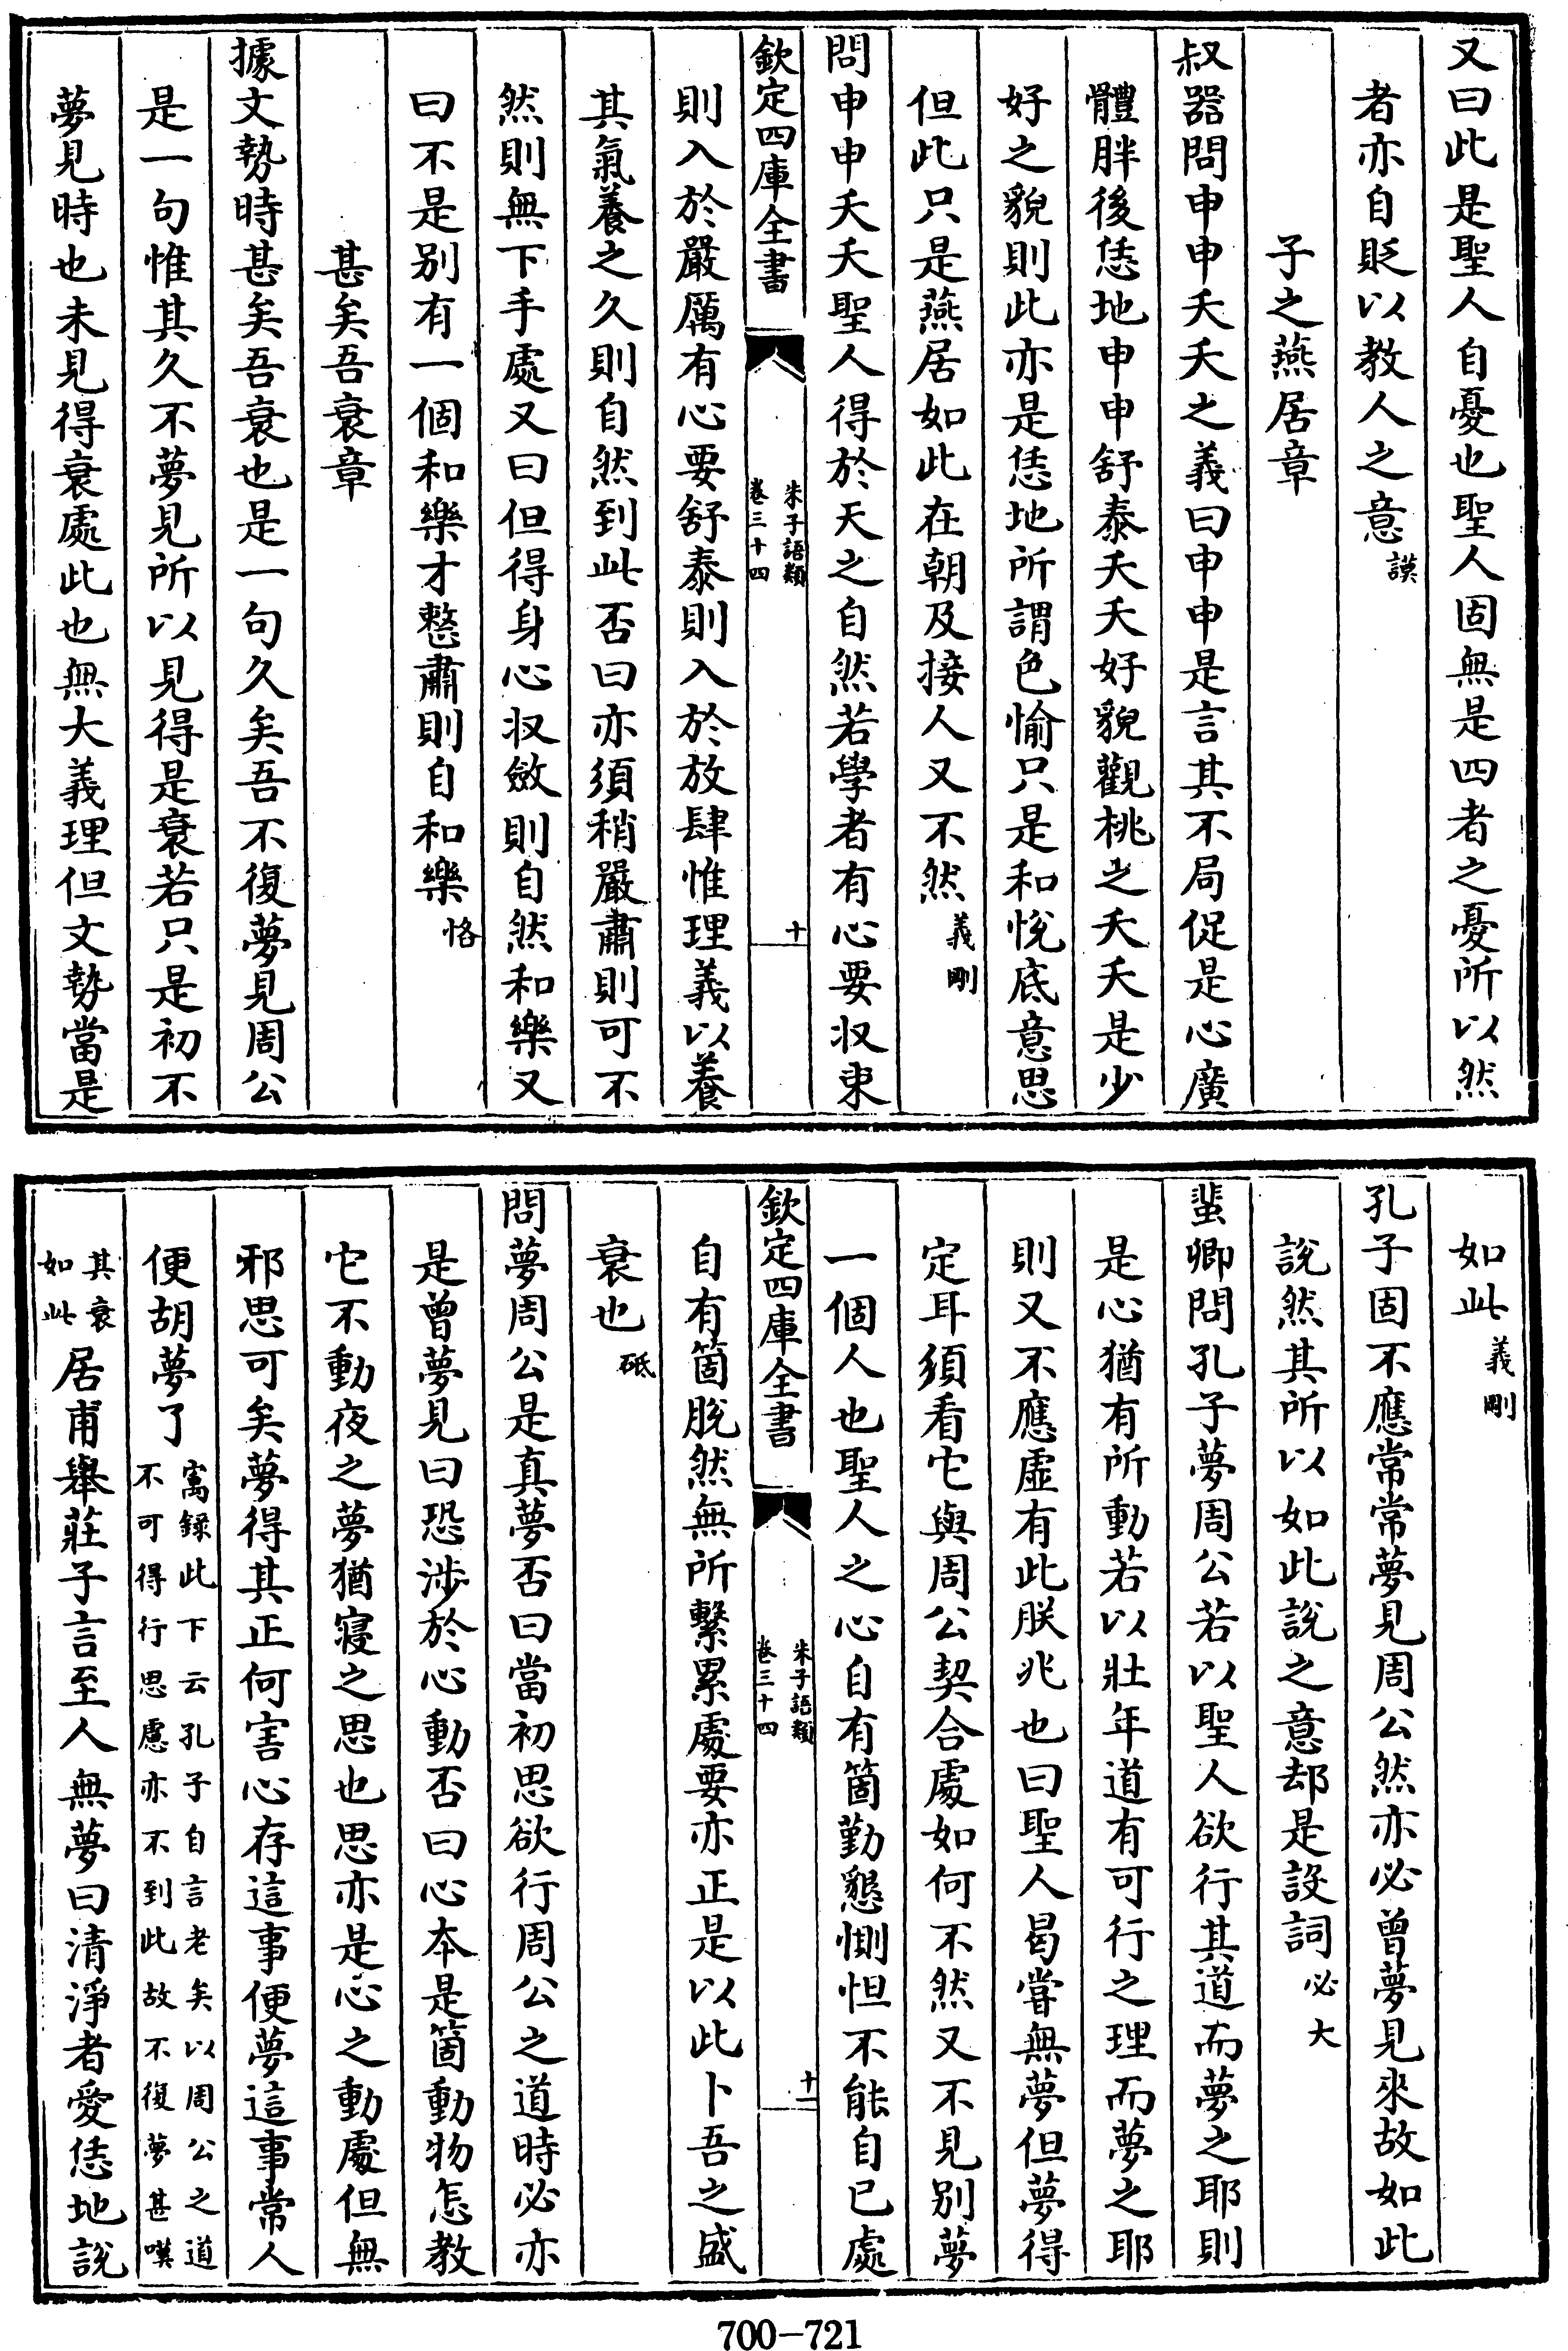 又曰此是聖人自憂也聖人固無是四者之憂所以然
者亦自貶以教人之意謨
子之燕居章
叔器問申申夭夭之義曰申申是言其不局促是心廣
體胖後恁地申申舒泰夭夭好貌觀桃之夭夭是少
好之貌則此亦是恁地所謂色愉只是和悅底意思
但此只是燕居如此在朝及接人又不然義剛
問申申夭夭聖人得於天之自然若學者有心要收束
欽定四庫全書
朱子語類
卷三十四
十
則入於嚴厲有心要舒泰則入於放肆惟理義以養
其氣養之久則自然到此否曰亦須稍嚴肅則可不
然則無下手處又曰但得身心收斂則自然和樂又
曰不是别有一個和樂才整肅則自和樂恪
甚矣吾衰章
據文勢時甚矣吾衰也是一句久矣吾不復夢見周公
是一句惟其久不夢見所以見得是衰若只是初不
夢見時也未見得衰處此也無大義理但文勢當是
如此義剛
孔子固不應常常夢見周公然亦必曾夢見來故如此
說然其所以如此說之意却是設詞必大
蜚卿問孔子夢周公若以聖人欲行其道而夢之耶則
是心猶有所動若以壯年道有可行之理而夢之耶
則又不應虚有此朕兆也曰聖人曷嘗無夢但夢得
定耳須看它與周公契合處如何不然又不見別夢
一個人也聖人之心自有箇勤懇惻怛不能自已處
欽定四庫全書
朱子語類
卷三十四
十一
自有箇脫然無所繫累處要亦正是以此卜吾之盛
衰也砥
問夢周公是真夢否曰當初思欲行周公之道時必亦
是曾夢見曰恐涉於心動否曰心本是箇動物怎教
它不動夜之夢猶寢之思也思亦是心之動處但無
邪思可矣夢得其正何害心存這事便夢這事常人
便胡夢了寓録此下云孔子自言老矣以周公之道
不可得行思慮亦不到此故不復夢甚嘆
其衰
如此居甫舉莊子言至人無夢曰清淨者愛恁地說
700-721